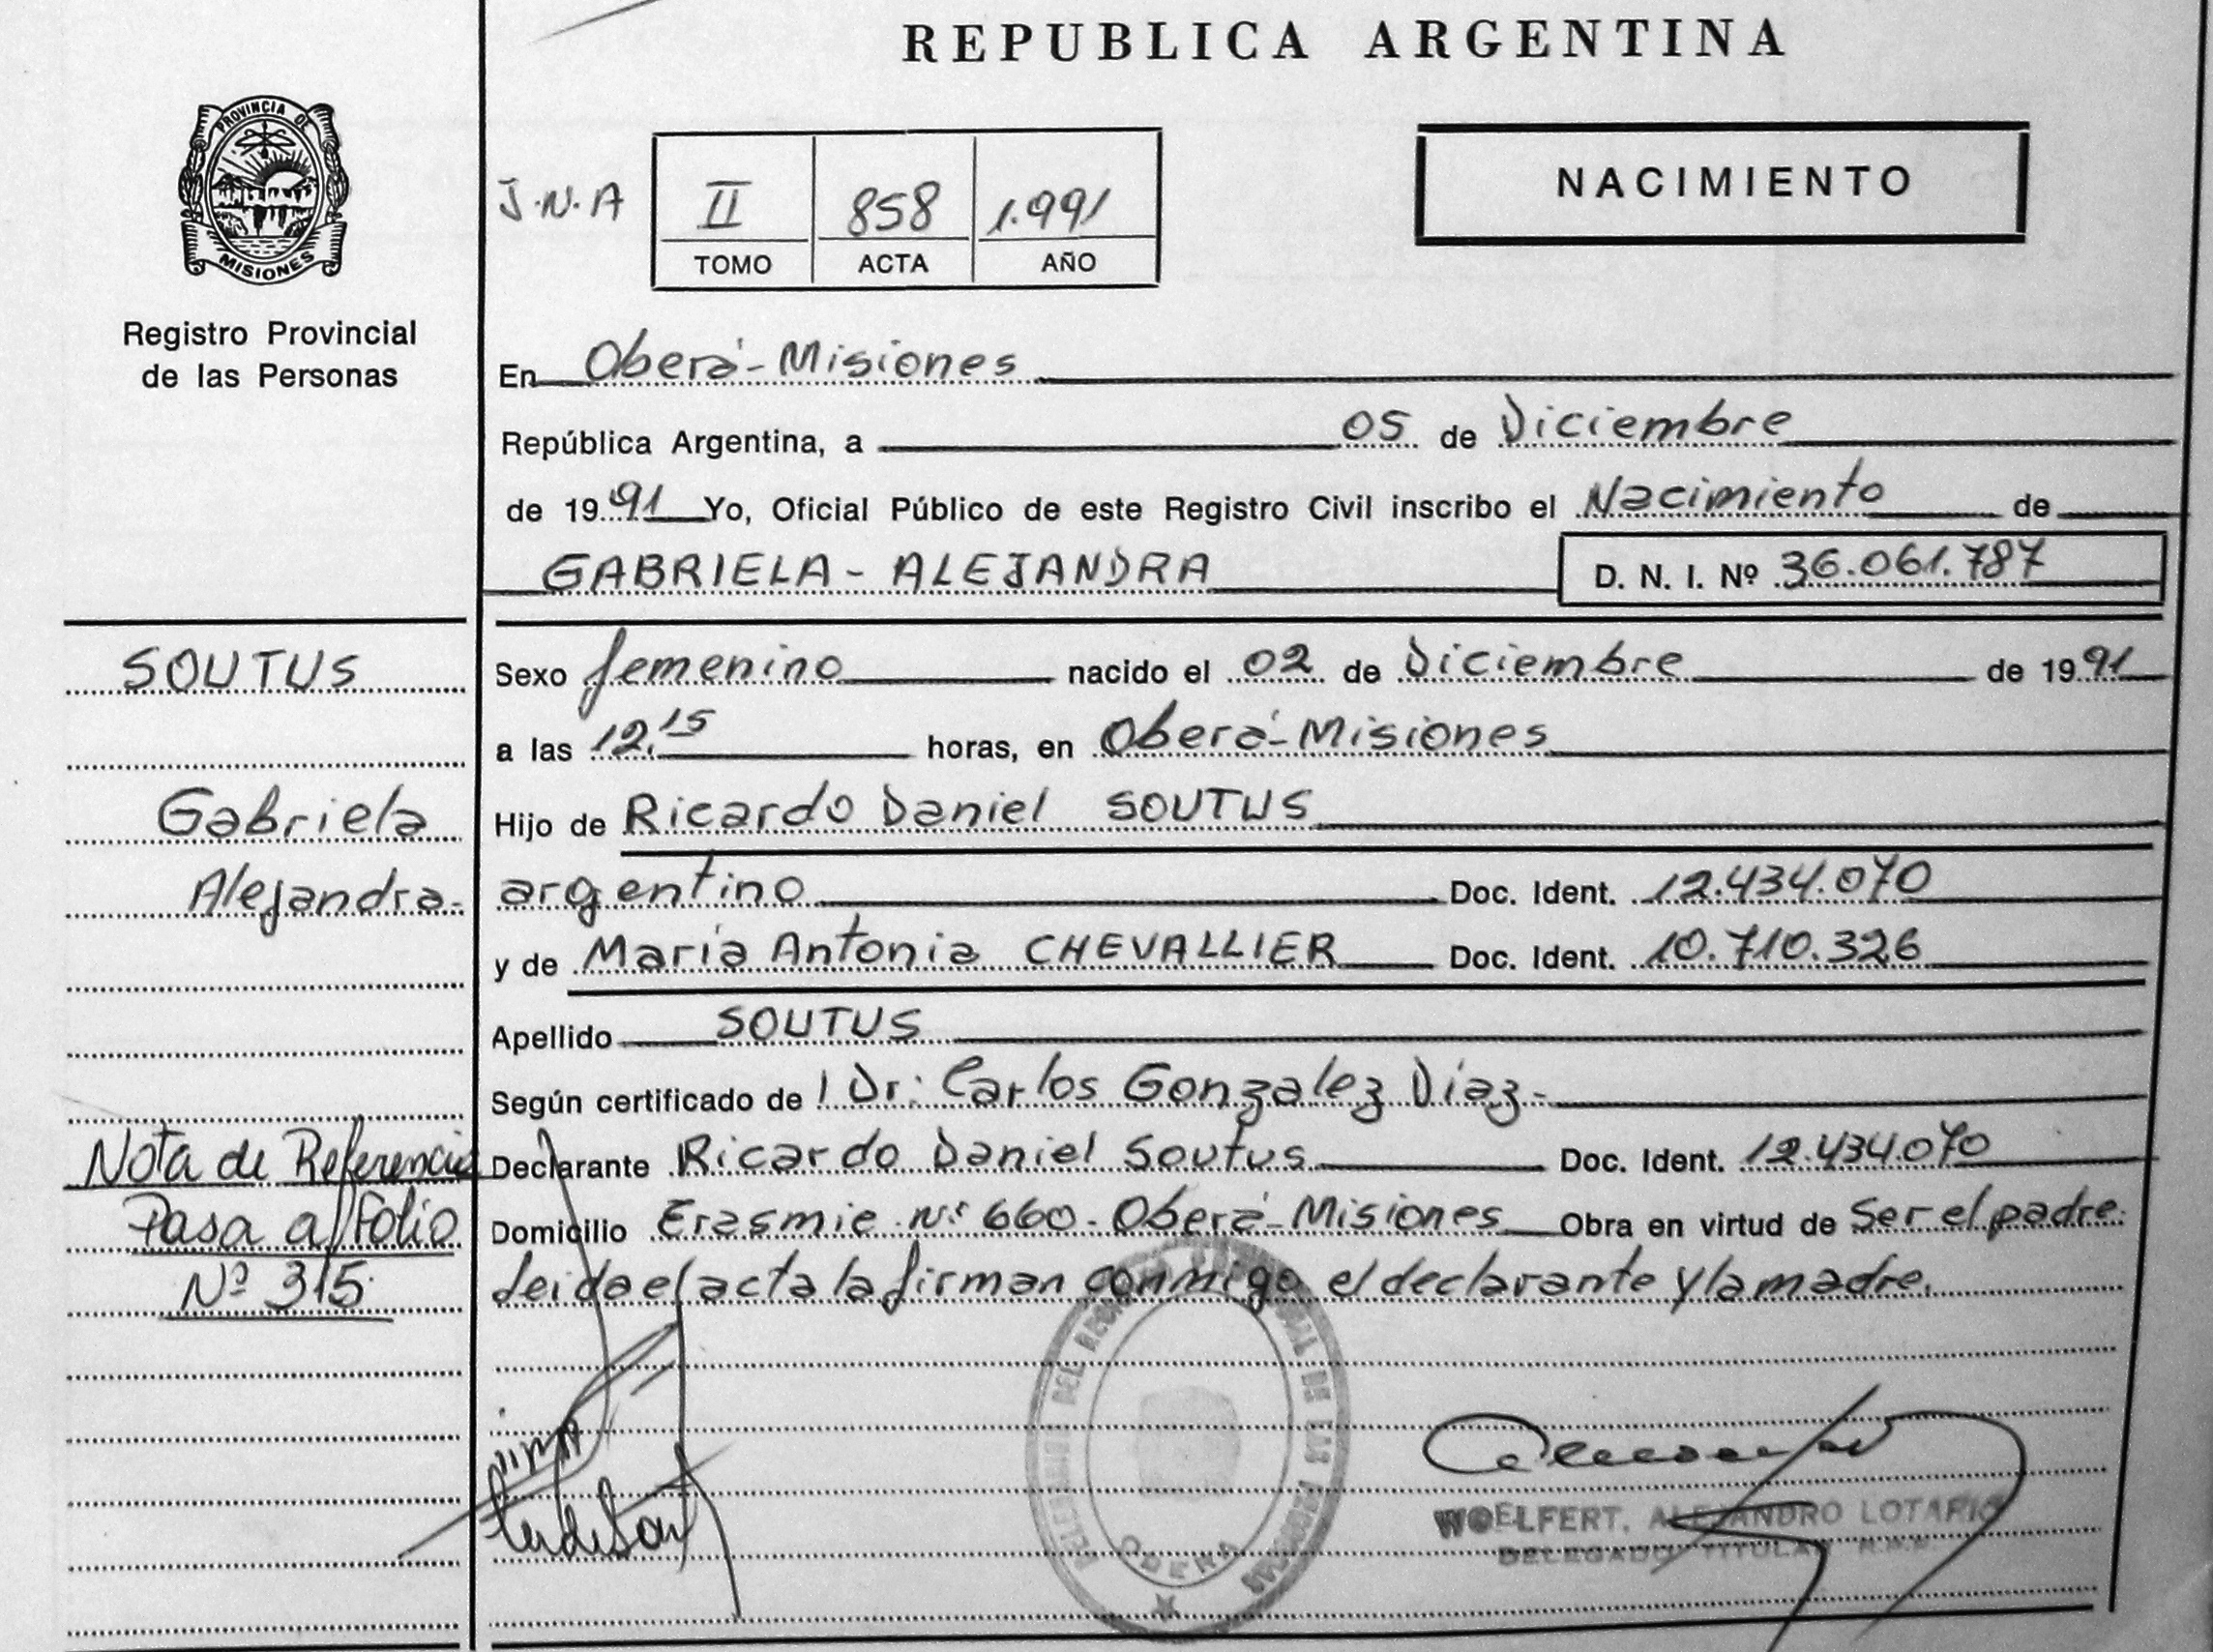 REPUBLICA ARGENTINA
PROVINCIA DE
MISIONES
Registro Provincial
de las Personas
J.N.A
II 858 1.991
TOMO ACTA AÑO
NACIMIENTO
En Oberá-Misiones
República Argentina, a 05 de Diciembre
de 1991 Yo, Oficial Público de este Registro Civil inscribo el Nacimiento de
GABRIELA - ALEJANDRA D. N. I. Nº 36.061.787
SOUTUS
Gabriela
Alejandra-
Nota de Referencia
Pasa a Folio
Nº 315
Sexo femenino nacido el 02 de Diciembre de 1991
a las 12,15 horas, en Oberá-Misiones
Hijo de Ricardo Daniel SOUTUS
argentino Doc. Ident. 12.434.070
y de María Antonia CHEVALLIER Doc. Ident. 10.710.326
Apellido SOUTUS
Según certificado de l Dr: Carlos Gonzalez Diaz-
Declarante Ricardo Daniel Soutus Doc. Ident. 12.434.070
Domicilio Erasmie Nº 660- Oberá-Misiones Obra en virtud de Ser el padre.
Leida el acta la firman conmigo el declarante y la madre.
DEL REGISTRO PROVINCIAL DE LAS PERSONAS
OBERA
WOELFERT, ALEJANDRO LOTARIO
DELEGADO TITULAR